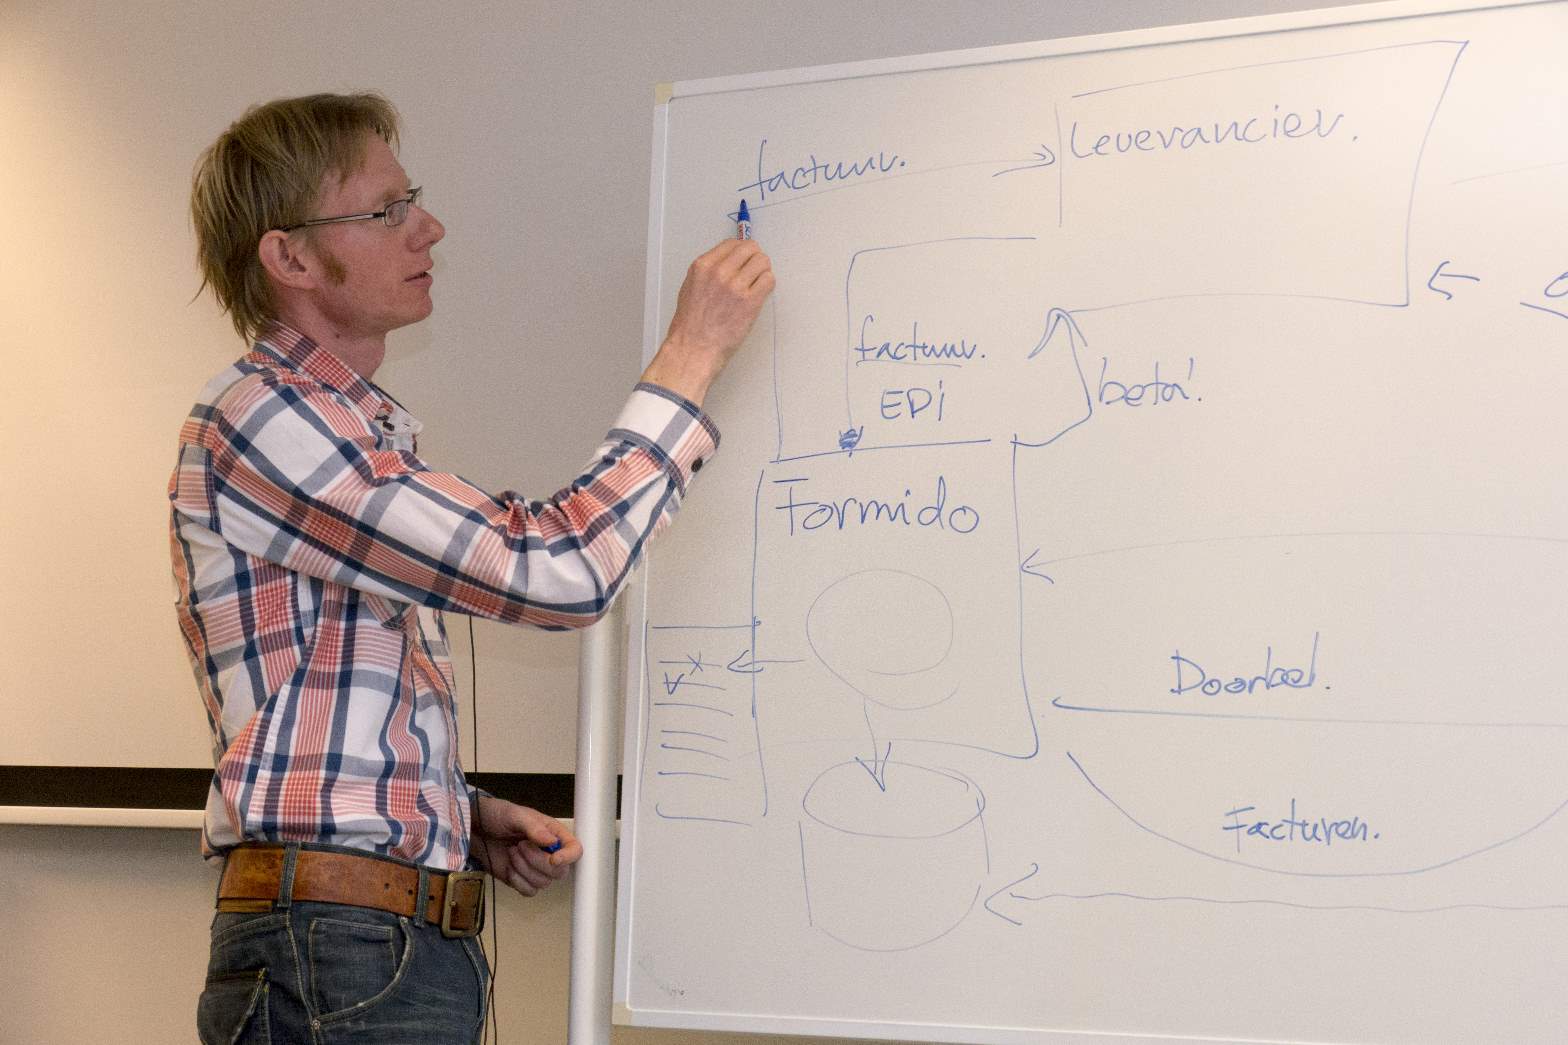 factuur.
Leverancier.
factuur.
EDI
beta'.
Formido
Facturen.